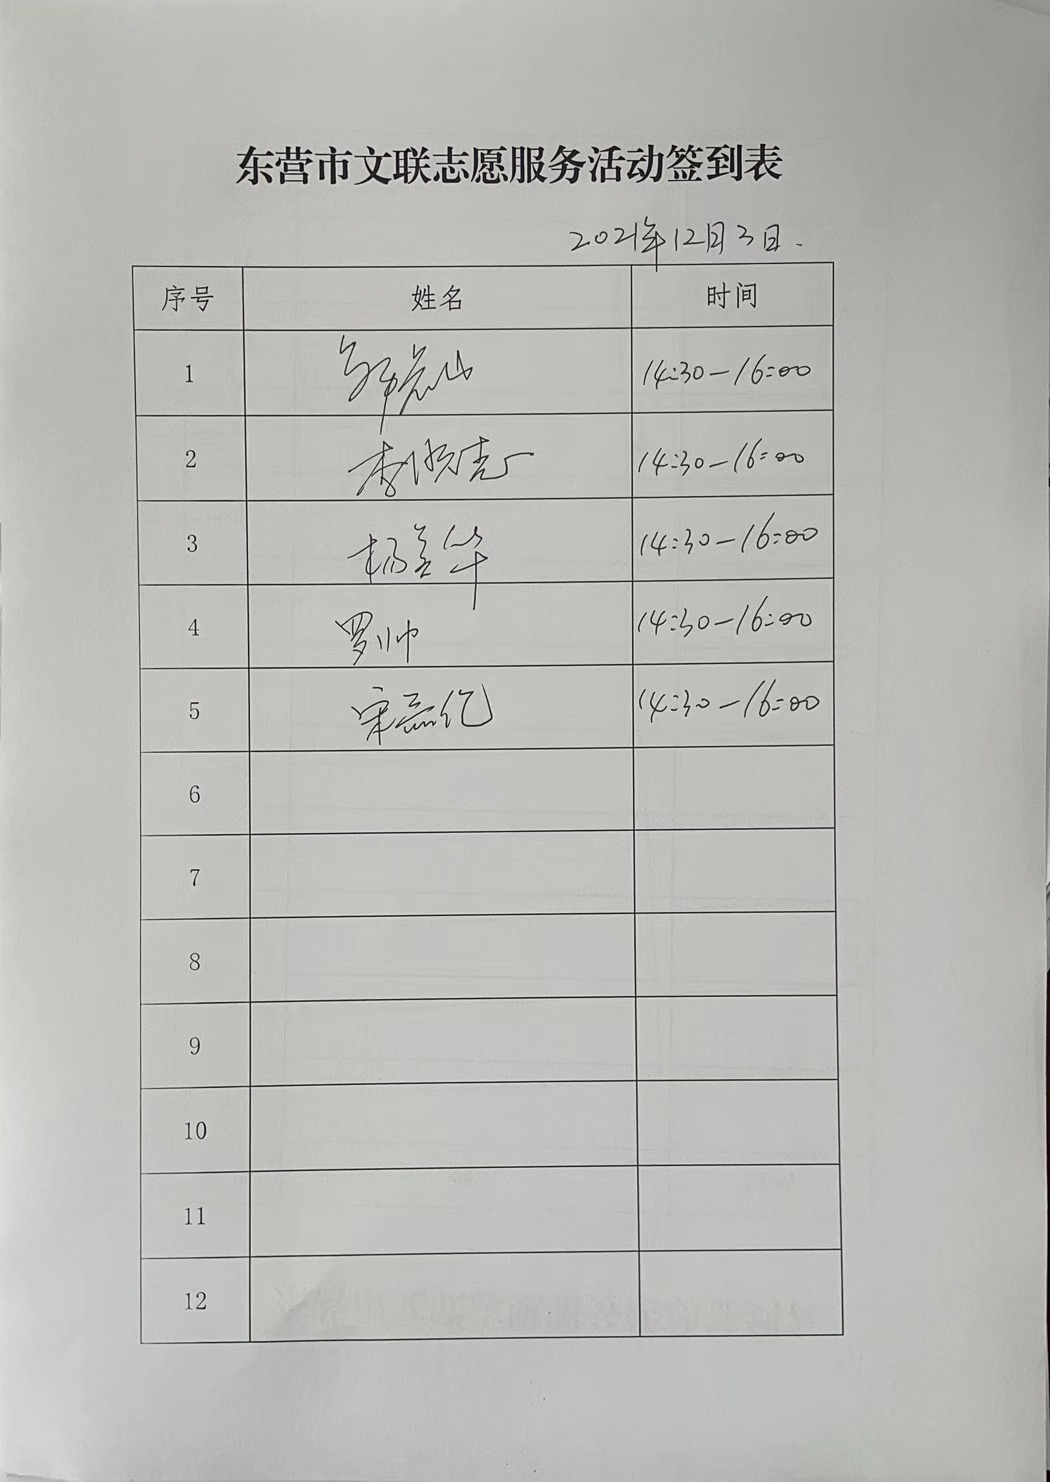 东营市文联志愿服务活动签到表
2021年12月3日.
序号 姓名 时间
1 14:30-16:00
2 李 14:30-16:00
3 杨美华 14:30-16:00
4 罗帅 14:30-16:00
5 宋 14:30-16:00
6
7
8
9
10
11
12